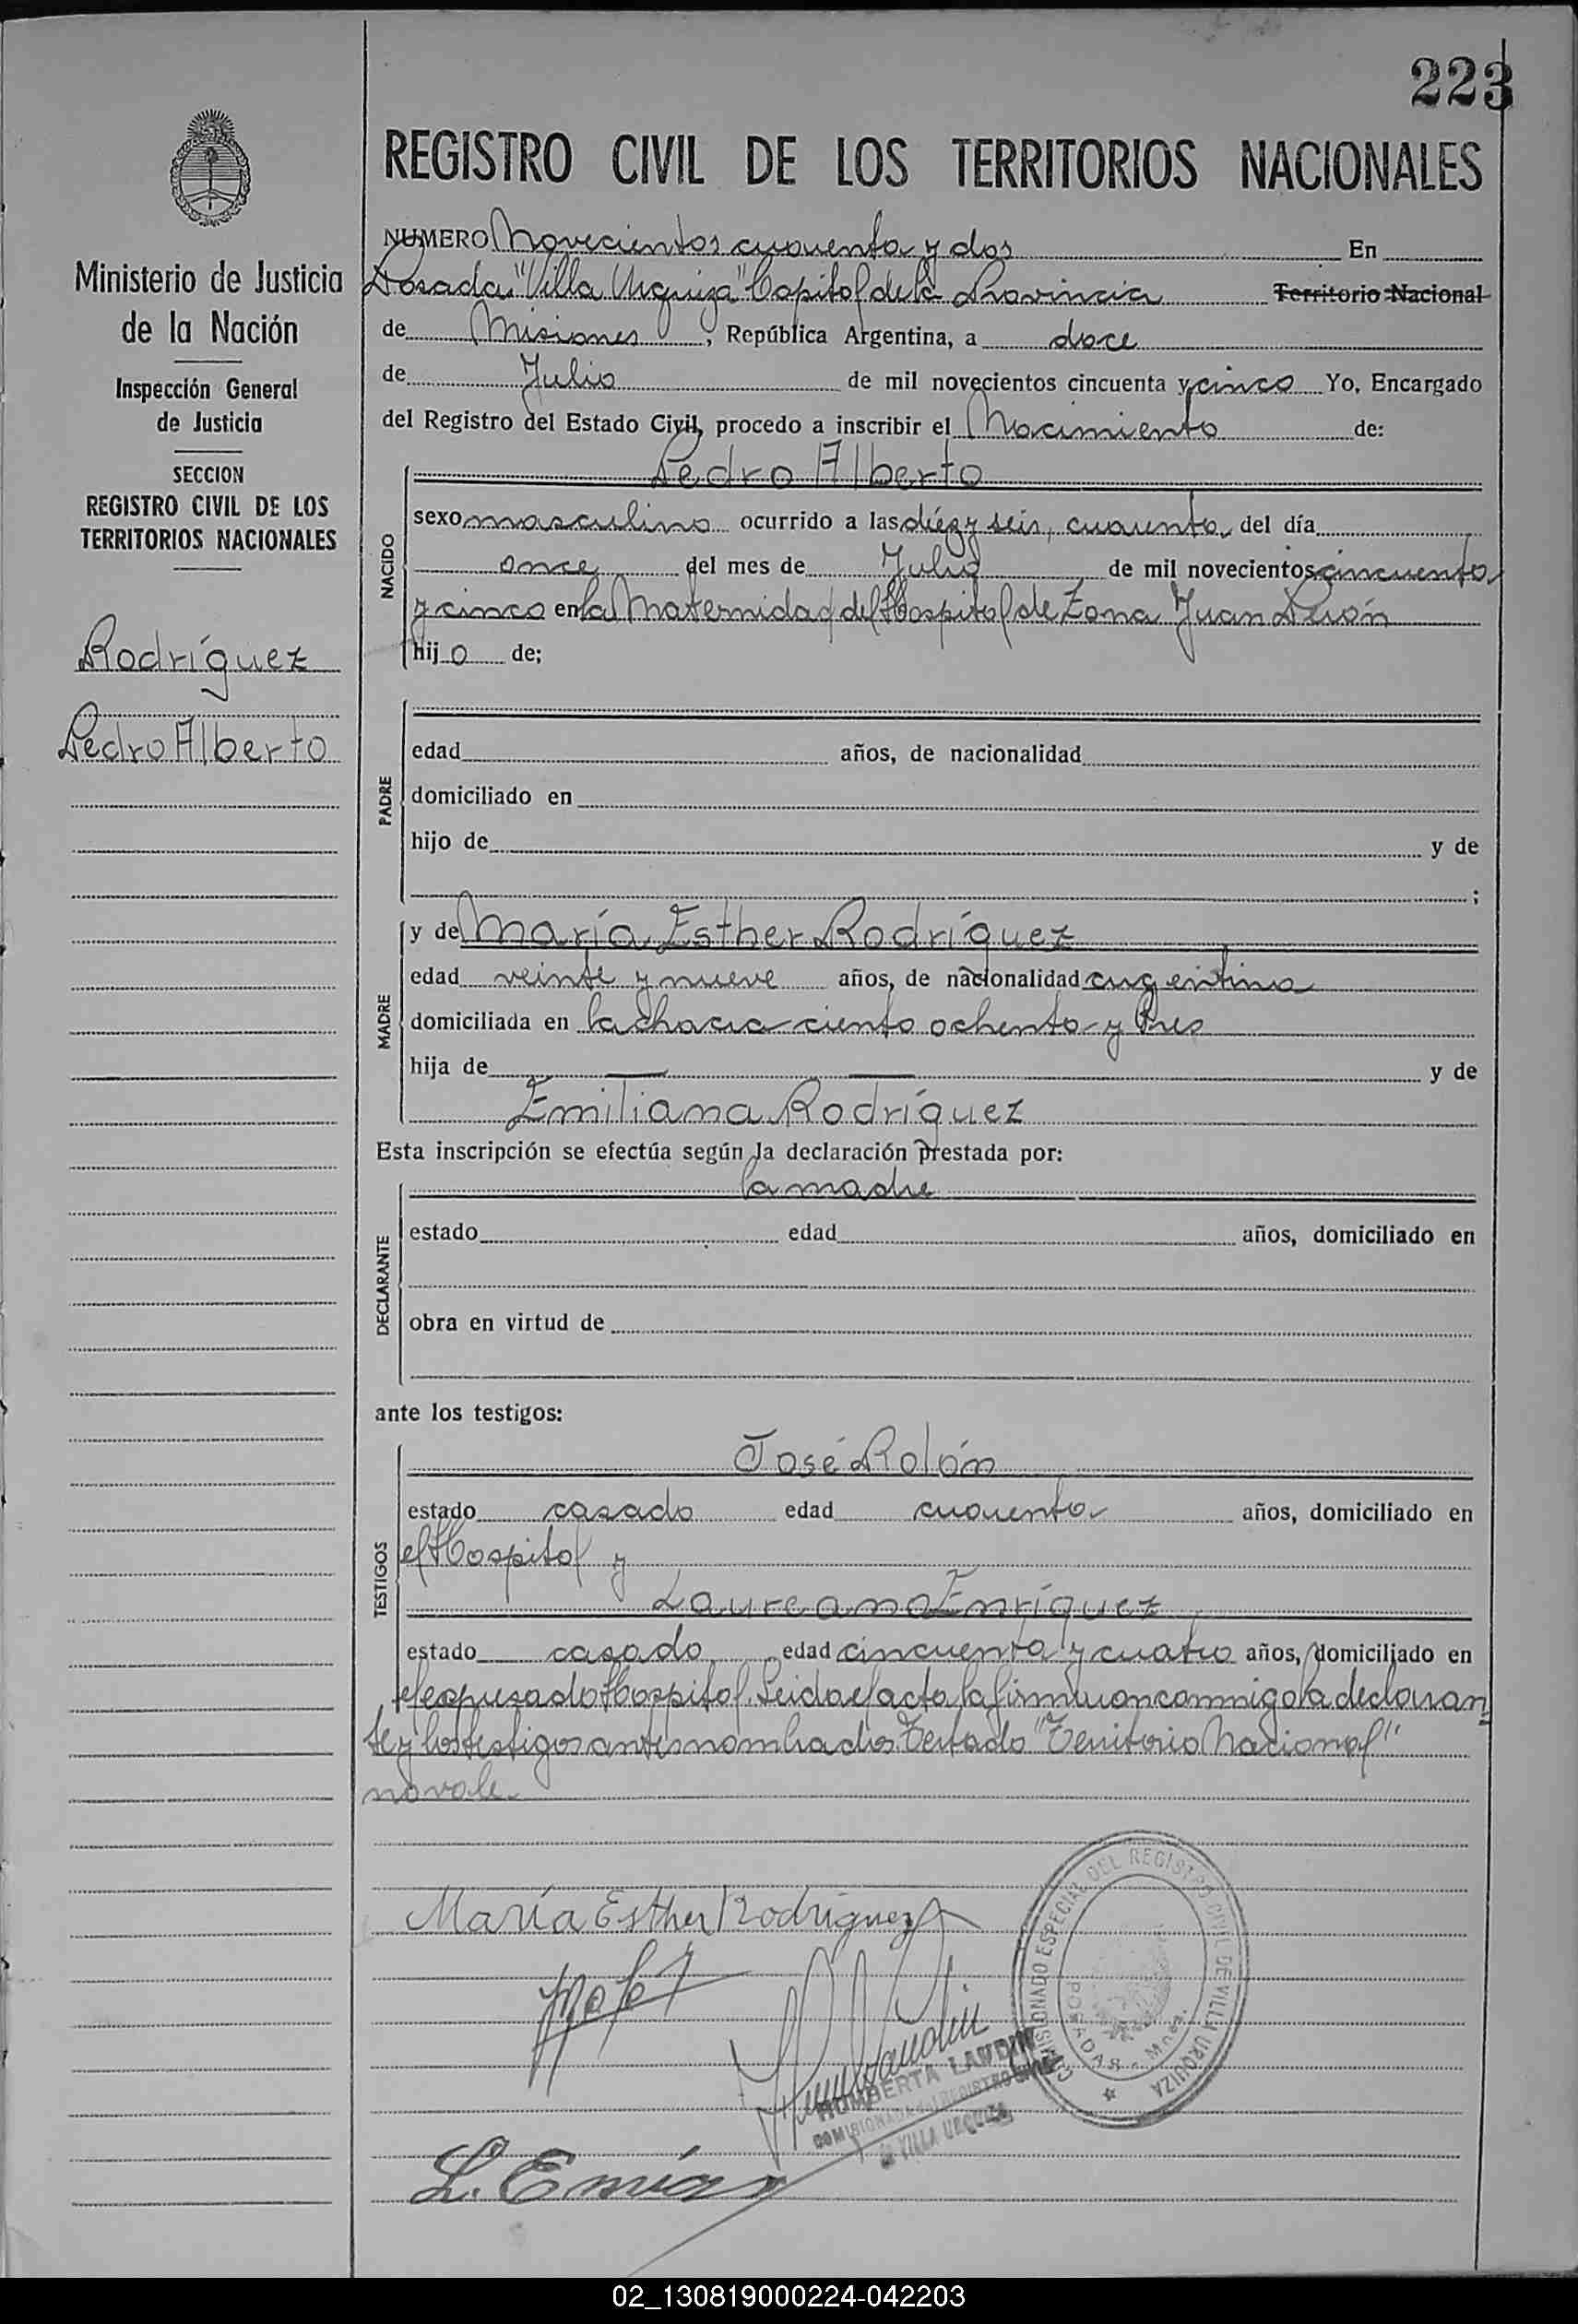 223
REGISTRO CIVIL DE LOS TERRITORIOS NACIONALES
Ministerio de Justicia
de la Nación
Inspección General
de Justicia
SECCION
REGISTRO CIVIL DE LOS
TERRITORIOS NACIONALES
Rodríguez
Pedro Alberto
NUMERO Novecientos cuarenta y dos En
Posadas "Villa Urquiza" Capital de la Provincia Territorio Nacional
de Misiones, República Argentina, a doce
de Julio de mil novecientos cincuenta y cinco Yo, Encargado
del Registro del Estado Civil, procedo a inscribir el Nacimiento de:
NACIDO
Pedro Alberto
sexo masculino ocurrido a las diez y seis, cuarenta del día
once del mes de Julio de mil novecientos cincuenta
y cinco en la Maternidad del Hospital de Zona Juan Perón
hijo de;
PADRE
edad años, de nacionalidad
domiciliado en
hijo de y de
;
MADRE
y de María Esther Rodríguez
edad veinte y nueve años, de nacionalidad argentina
domiciliada en la chacra ciento ochenta y tres
hija de y de
Emiliana Rodríguez
Esta inscripción se efectúa según la declaración prestada por:
DECLARANTE
la madre
estado edad años, domiciliado en
obra en virtud de
ante los testigos:
TESTIGOS
José Rolón
estado casado edad cuarenta años, domiciliado en
el Hospital y
Laureano Enríquez
estado casado edad cincuenta y cuatro años, domiciliado en
el expresado Hospital. Leida el acta la firmaron conmigo la declaran
te y los testigos antes nombrados. Testado "Territorio Nacional"
no vale
María Esther Rodríguez
HUMBERTA LANDIN
COMISIONADA REGISTRO CIVIL
VILLA URQUIZA
COMISIONADO ESPECIAL DEL REGISTRO CIVIL DE VILLA URQUIZA
POSADAS - Mnes.
02_130819000224-042203